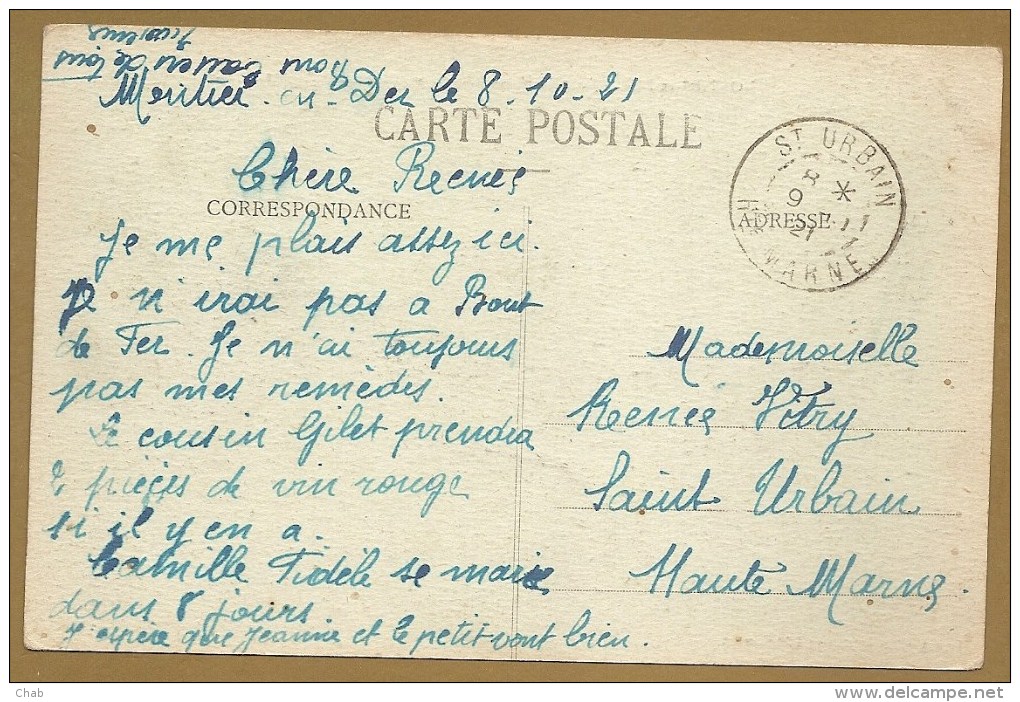 Bons baisers de tous
Montier-en-Der le 8-10-21
CARTE POSTALE
Chère Renée
CORRESPONDANCE
Je me plais assez ici.
Je n'irai pas a Bout
de Fer. Je n'ai toujours
pas mes remèdes.
Le cousin Gilet prendra
2 pièces de vin rouge
si il y en a.
Camille Fidèle se marie
dans 8 jours
J'espère que Jeanne et le petit vont bien.
ST URBAIN
8 *
9 - 11
21
HTE MARNE
ADRESSE
Mademoiselle
Renée Vitry
Saint Urbain
Haute Marne
Chab
http://www.delcampe.net